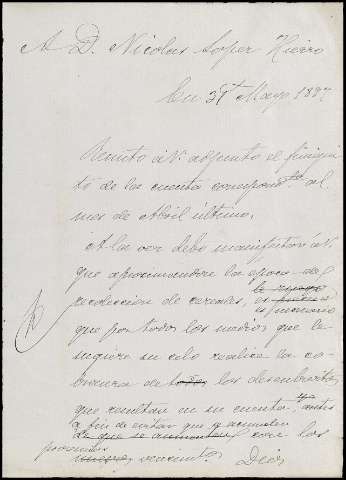 A D. Nicolas Lopez Hierro
En 31 Mayo 1897
Remito á V. adjunto el finiqui
to de las cuenta correspond.te al
mes de Abril último.
A la vez debo manifestar á V.
que aproximandose la epoca del
recoleccion de cereales, es necesario
que por todos los medios que le
sugiere su celo realice la co-
branza de todos los descubiertos
que resultan en su cuenta, antes
a fin de evitar que se aumenten
de que se aumenten con los
proximos
nuevos vencimtos. Dios